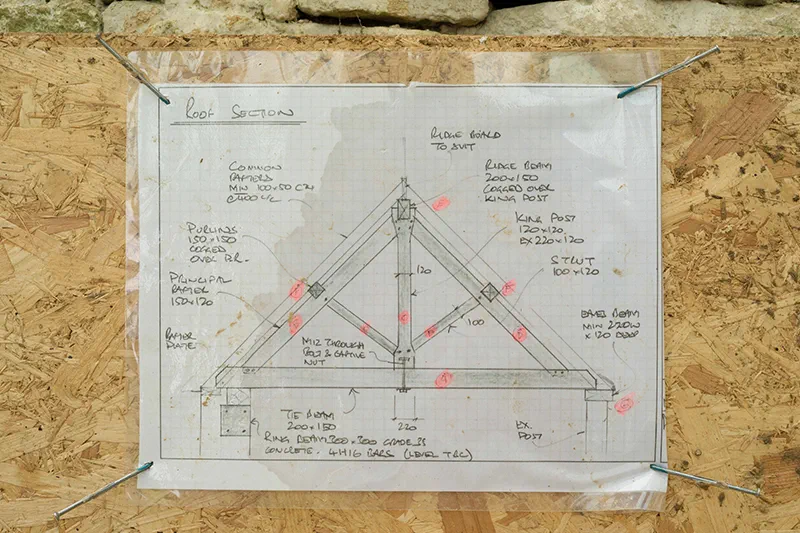 ROOF SECTION
RIDGE BOARD
TO SUIT
COMMON
RAFTERS
MIN 100x50 C24
@400 c/c
RIDGE BEAM
200x150
COGGED OVER
KING POST
PURLINS
150x150
COGGED
OVER P.R.
KING POST
120x120
EX 220x120
STRUT
100x120
PRINCIPAL
RAFTER
150x120
120
100
EAVES BEAM
MIN 220W
x 120 DEEP
RAFTER
PLATE
M12 THROUGH
BOLT & CAPTIVE
NUT
TIE BEAM
200x150
220
EX.
POST
RING BEAM 300x300 GRADE 35
CONCRETE. 4H16 BARS (LEVEL T&C)